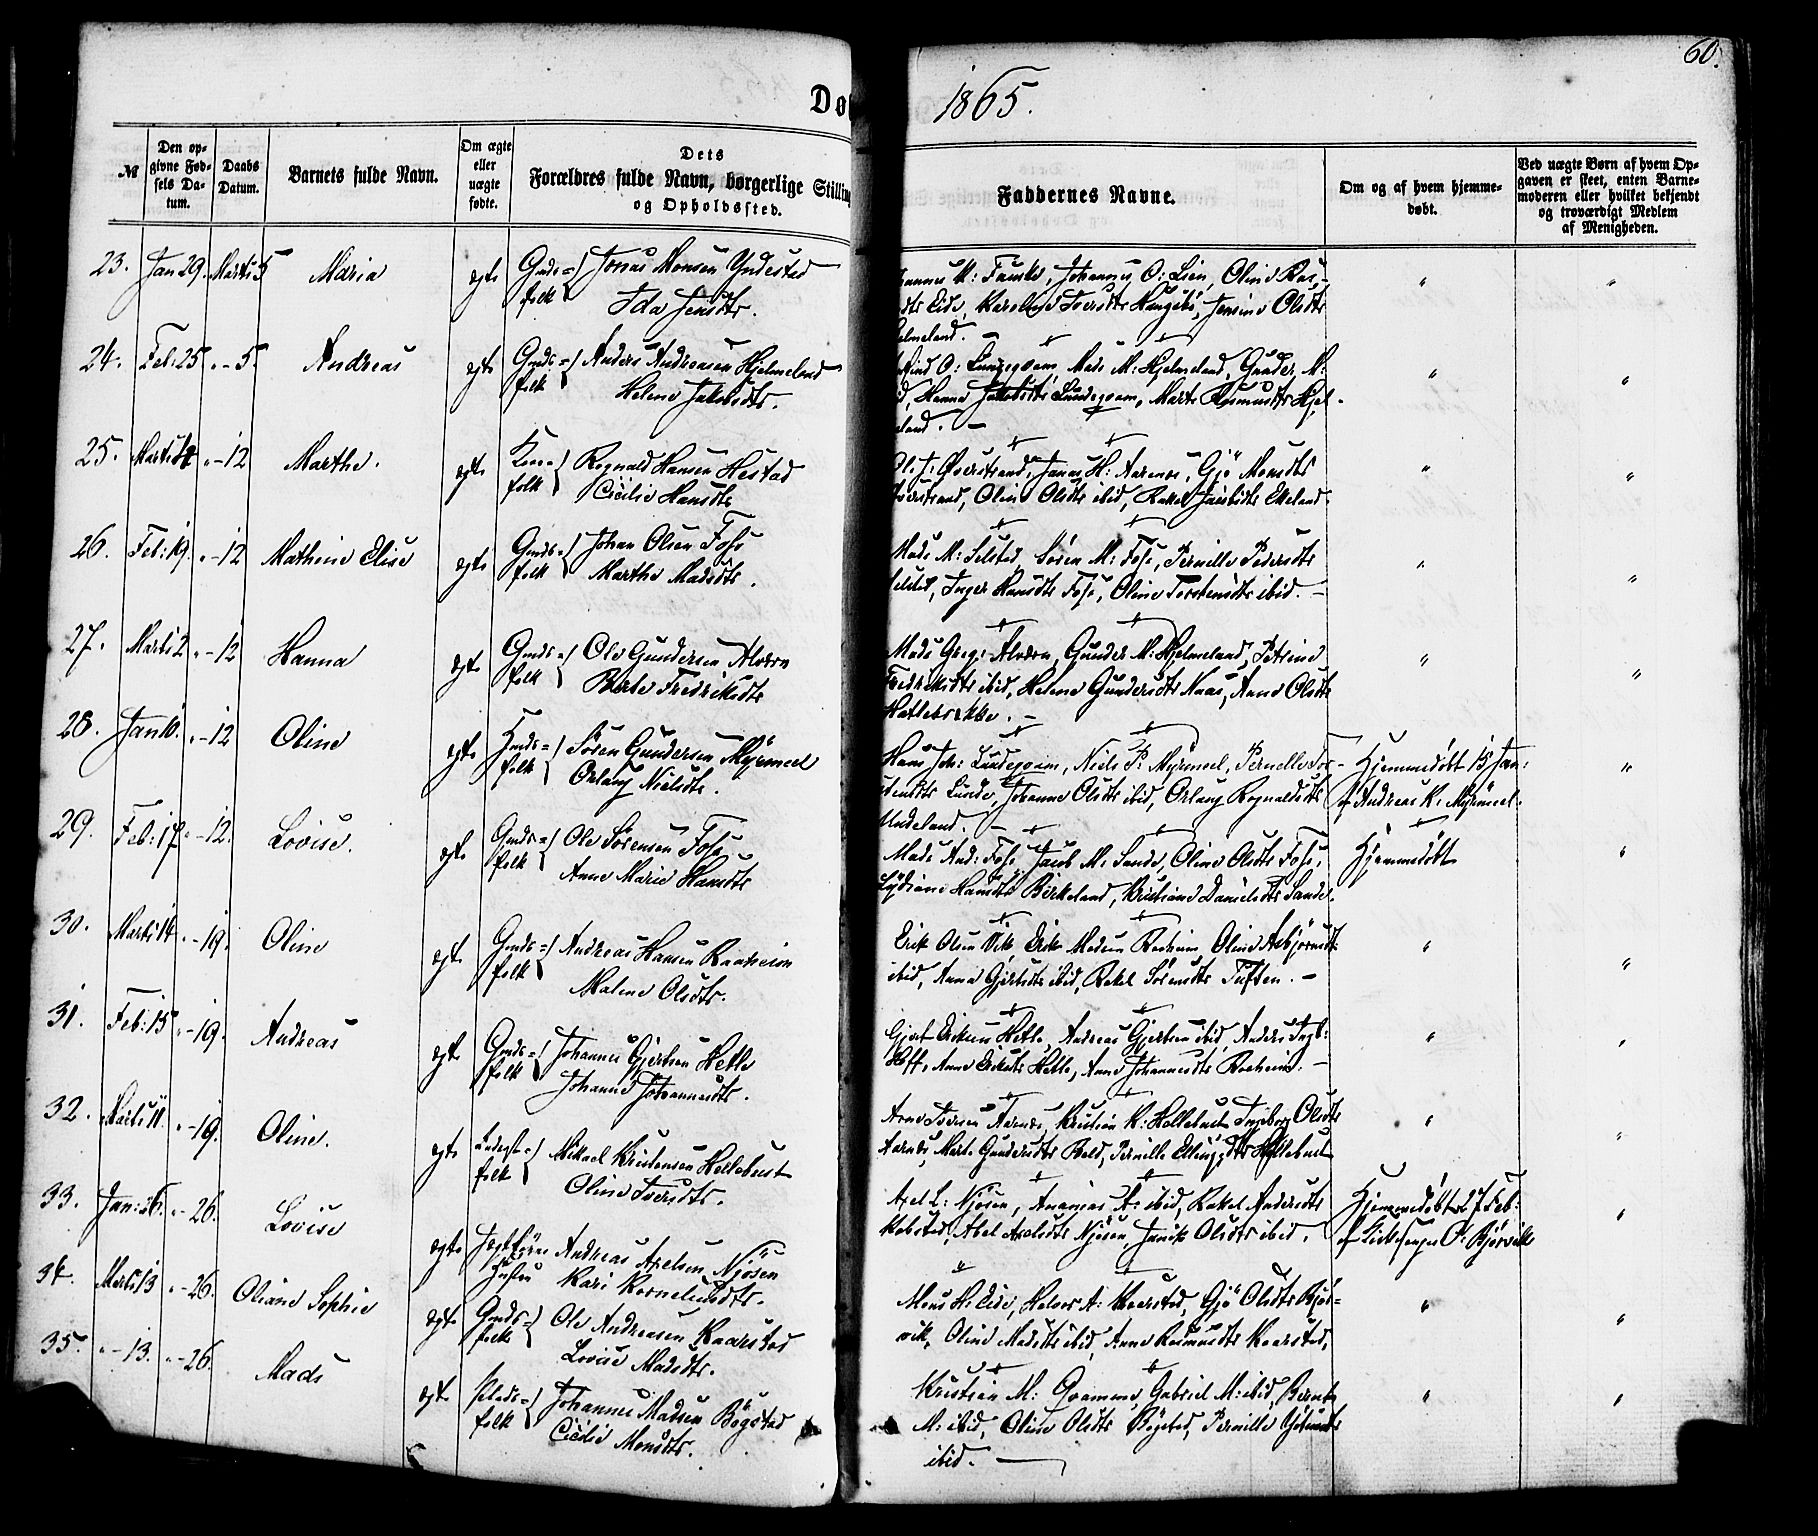 60.
Dø
1865.
№
Den opgivne Fødsels Datum.
Daabs Datum.
Barnets fulde Navn.
Om ægte eller uægte fødte.
Dets
Forældres fulde Navn, borgerlige Stillin
og Opholdssted.
Faddernes Navne.
Om og af hvem hjemmedøbt.
Ved uægte Børn af hvem Opgaven er skeet, enten Barnemoderen eller hvilket bekjendt og troværdigt Medlem af Menigheden.
23. Jan 29. Marts 5 Maria egte Gmds= folk Jonas Monsen Yndestad
Ida Jensdtr.
Johannes O: Lien, Oline Ras-
dtr Eide, Karoline Iversdtr Haugebø, Jensine Olsdtr
elmeland. —
24. Feb: 25 " - 5. Andreas egte Gmds= folk Anders Andreasen Hjelmeland
Helene Jakobsdtr.
O: Lundegoam, Mads M: Hjelmeland, Gunder M:
d, Hanna Jakobsdtr Lundegoam, Marte Rasmusdtr Hjel-
land. —
25. Marts " - 12 Marthe. egte folk Rognald Hansen Hestad
Cicilie Hansdtr
J: Øverstrand, Jonas H: Aarnes, Gjø Monsdtr
Øverstrand, Oline Olsdtr ibid, Rakel Jacobsdtr Ekeland.
26. Feb: 19. " - 12 Mathine Elise egte Gmds= folk Johan Olsen Foss
Marthe Madsdtr.
Mads M: Selstad, Søren M: Foss, Pernille Pedersdtr
Selstad, Inger Hansdtr Foss, Oline Torstensdtr ibid. —
27. Marts 2 " - 12 Hanna egte Gmds= folk Ole Gundersen Alværn
Berte Fredriksdtr
Mads Greg: Alværn, Gunder M: Hjelmeland, Petrine
Fredriksdtr ibid, Helene Gundersdtr Naas, Anne Olsdtr
Hatlebrekke. —
28. Jan 10. " - 12 Oline egte Hmds= folk Søren Gundersen Myrmeel
Orlaug Nielsdtr.
Hans Joh: Lundegoam, Niels P: Myrmeel, Pernelle Tor-
stensdtr Lunde, Johanne Olsdtr ibid, Orlaug Rognaldsdtr
Undeland. —
Hjemmedøbt 15 Jan:
af Andreas K: Myrmeel.
29. Feb: 17 " - 12. Lovise. egte Gmds= folk Ole Sørensen Foss
Anne Marie Hansdtr
Mads And: Foss, Jacob M: Sande, Oline Olsdtr Foss,
Lydiane Hansdtr Birkeland, Kristiane Danielsdtr Sande.
Hjemmedøbt
30. Marts 14. " - 19. Oline egte Gmds= folk Andreas Hansen Raaheim
Malene Olsdtr.
Erik Olsen Vik, Erik Madsen Roeheim, Oline Asbjørnsdtr
ibid, Anna Gjertsdtr ibid, Rakel Sørensdtr Tuften. —
31. Feb: 15 " - 19. Andreas egte Gmds= folk Johannes Gjertsen Hetle
Johanne Johannesdtr.
Gjert Eriksen Hetle, Andreas Gjertsen ibid, Anders Ingb:
Hoff, Anne Eriksdtr Hetle, Anne Johannesdtr Roeheim. —
32. Marts 11. " - 19. Oline. egte folk Mikael Kristensen Hellebust
Oline Iversdtr.
Arne Iversen Aarnes, Kristian K: Hellebust, Ingeborg Olsdtr
Aarnes, Marte Gundersdtr Bell, Pernille Ellingsdtr Hellebust
33. Jan: 26. " - 26. Lovise egte Hustru Andreas Axelsen Njøsen
Kari Korneliusdtr.
Axel L: Njøsen, Ananias A: ibid, Rakel Andersdtr
Mobsted, Abel Axelsdtr Njøsen, Janik Olsdtr ibid.
Hjemmedøbt 27 Feb:
af Kirkesanger O: Bjørvik
34. Marts 13 " - 26. Oliane Sophie egte Gmds= folk Ole Andreasen Kaarstad
Lovise Madsdtr.
Mons H: Eide, Helvor A: Kaarstad, Gjø Olsdtr Bjør=
vik, Oline Madsdtr ibid, Anne Rasmusdtr Kaarstad,
35. " - 13. " - 26. Mads egte folk Johannes Madsen Bøgstad
Cicilie Monsdtr.
Kristian M: Qvamme, Gabriel M: ibid, Bernt
M: ibid, Oline Olsdtr Bøgstad, Pernille
ibid. —